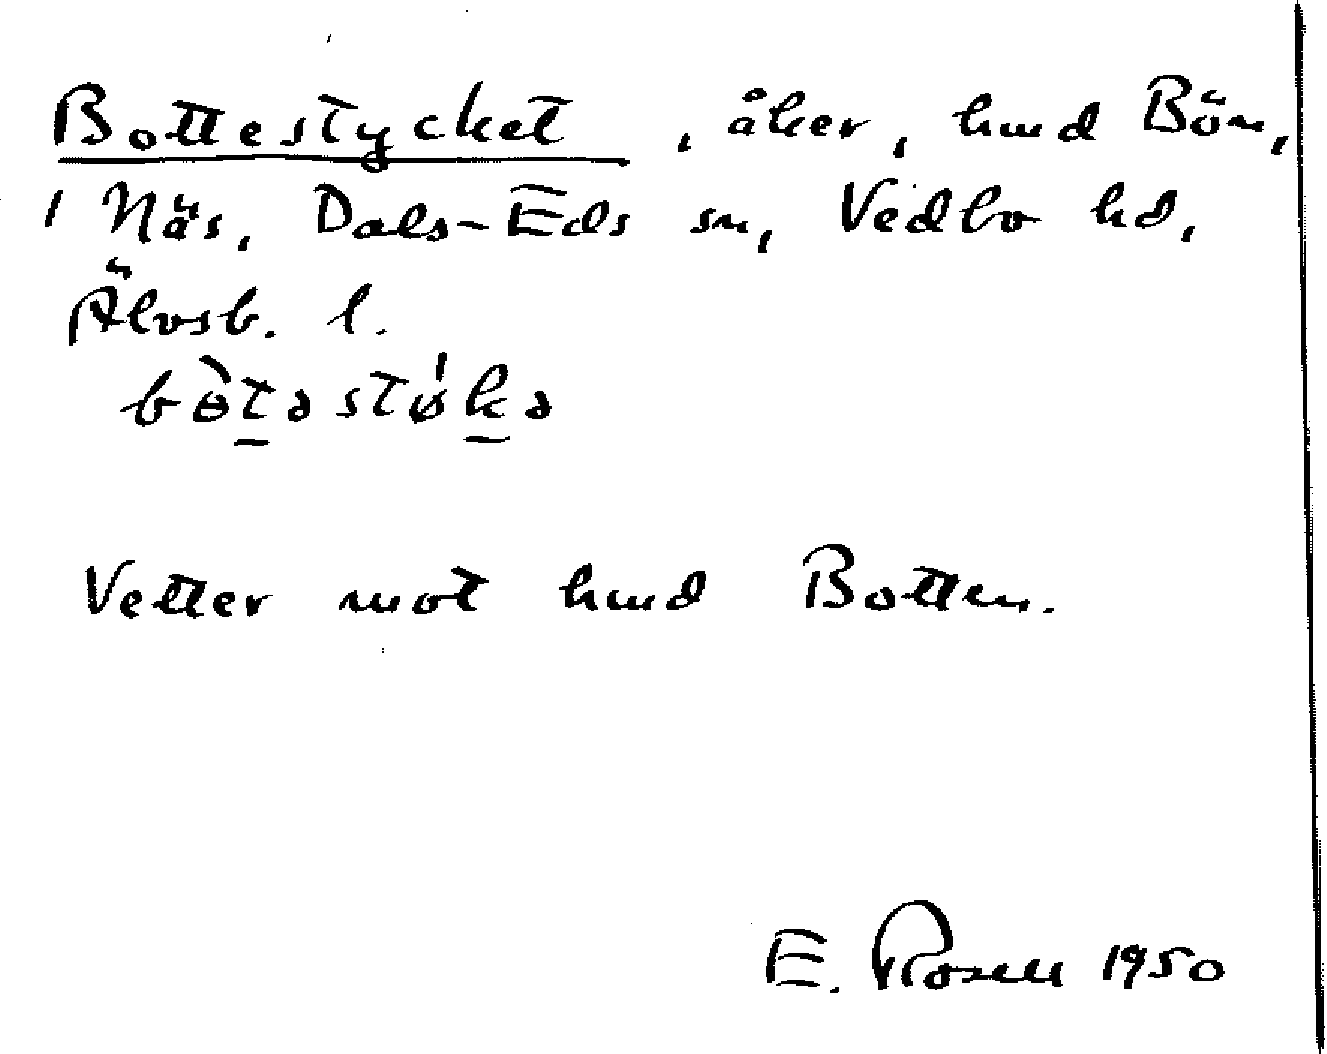 Bottestycket, åker, hmd Bön,
1 Näs, Dals-Eds sn, Vedbo hd,
Älvsb. l.
bò̵təstǿkə
Vetter mot hmd Botten.
E. Rosell 1950